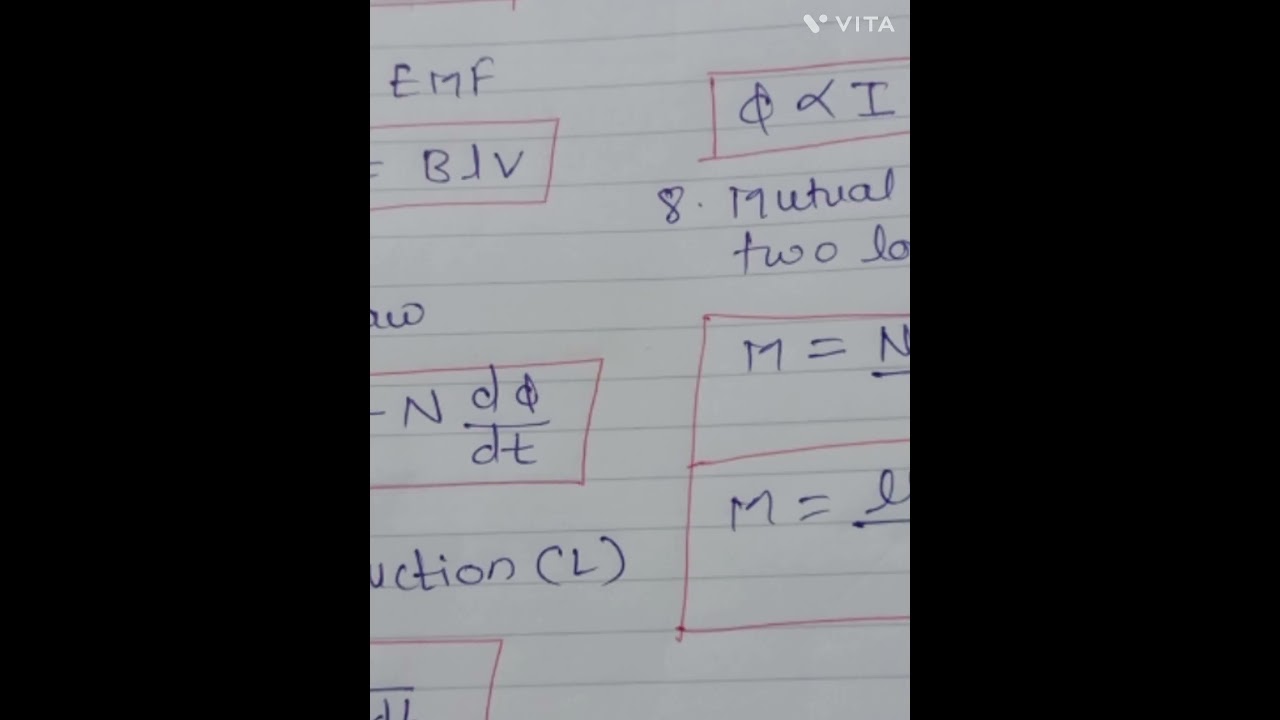 VITA
EMF
= BlV
aw
- N dφ/dt
uction (L)
φ ∝ I
8. Mutual
two lo
M = N
M =